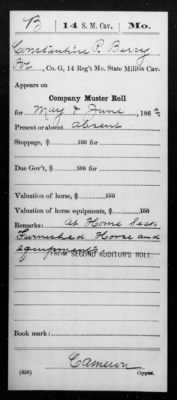 B | 14 S. M. Cav. | Mo.
Constantine P. Berry
Pvt, Co. G, 14 Reg't Mo. State Militia Cav.
Appears on
Company Muster Roll
for May & June, 1862
Present or absent absent
Stoppage, $ 100 for
Due Gov't, $ 100 for
Valuation of horse, $ 100
Valuation of horse equipments, $ 100
Remarks: At Home Sick
Furnished Horse and
equipments
FROM SECOND AUDITOR'S ROLL
Book mark:
Cameron
(858) Copyist.